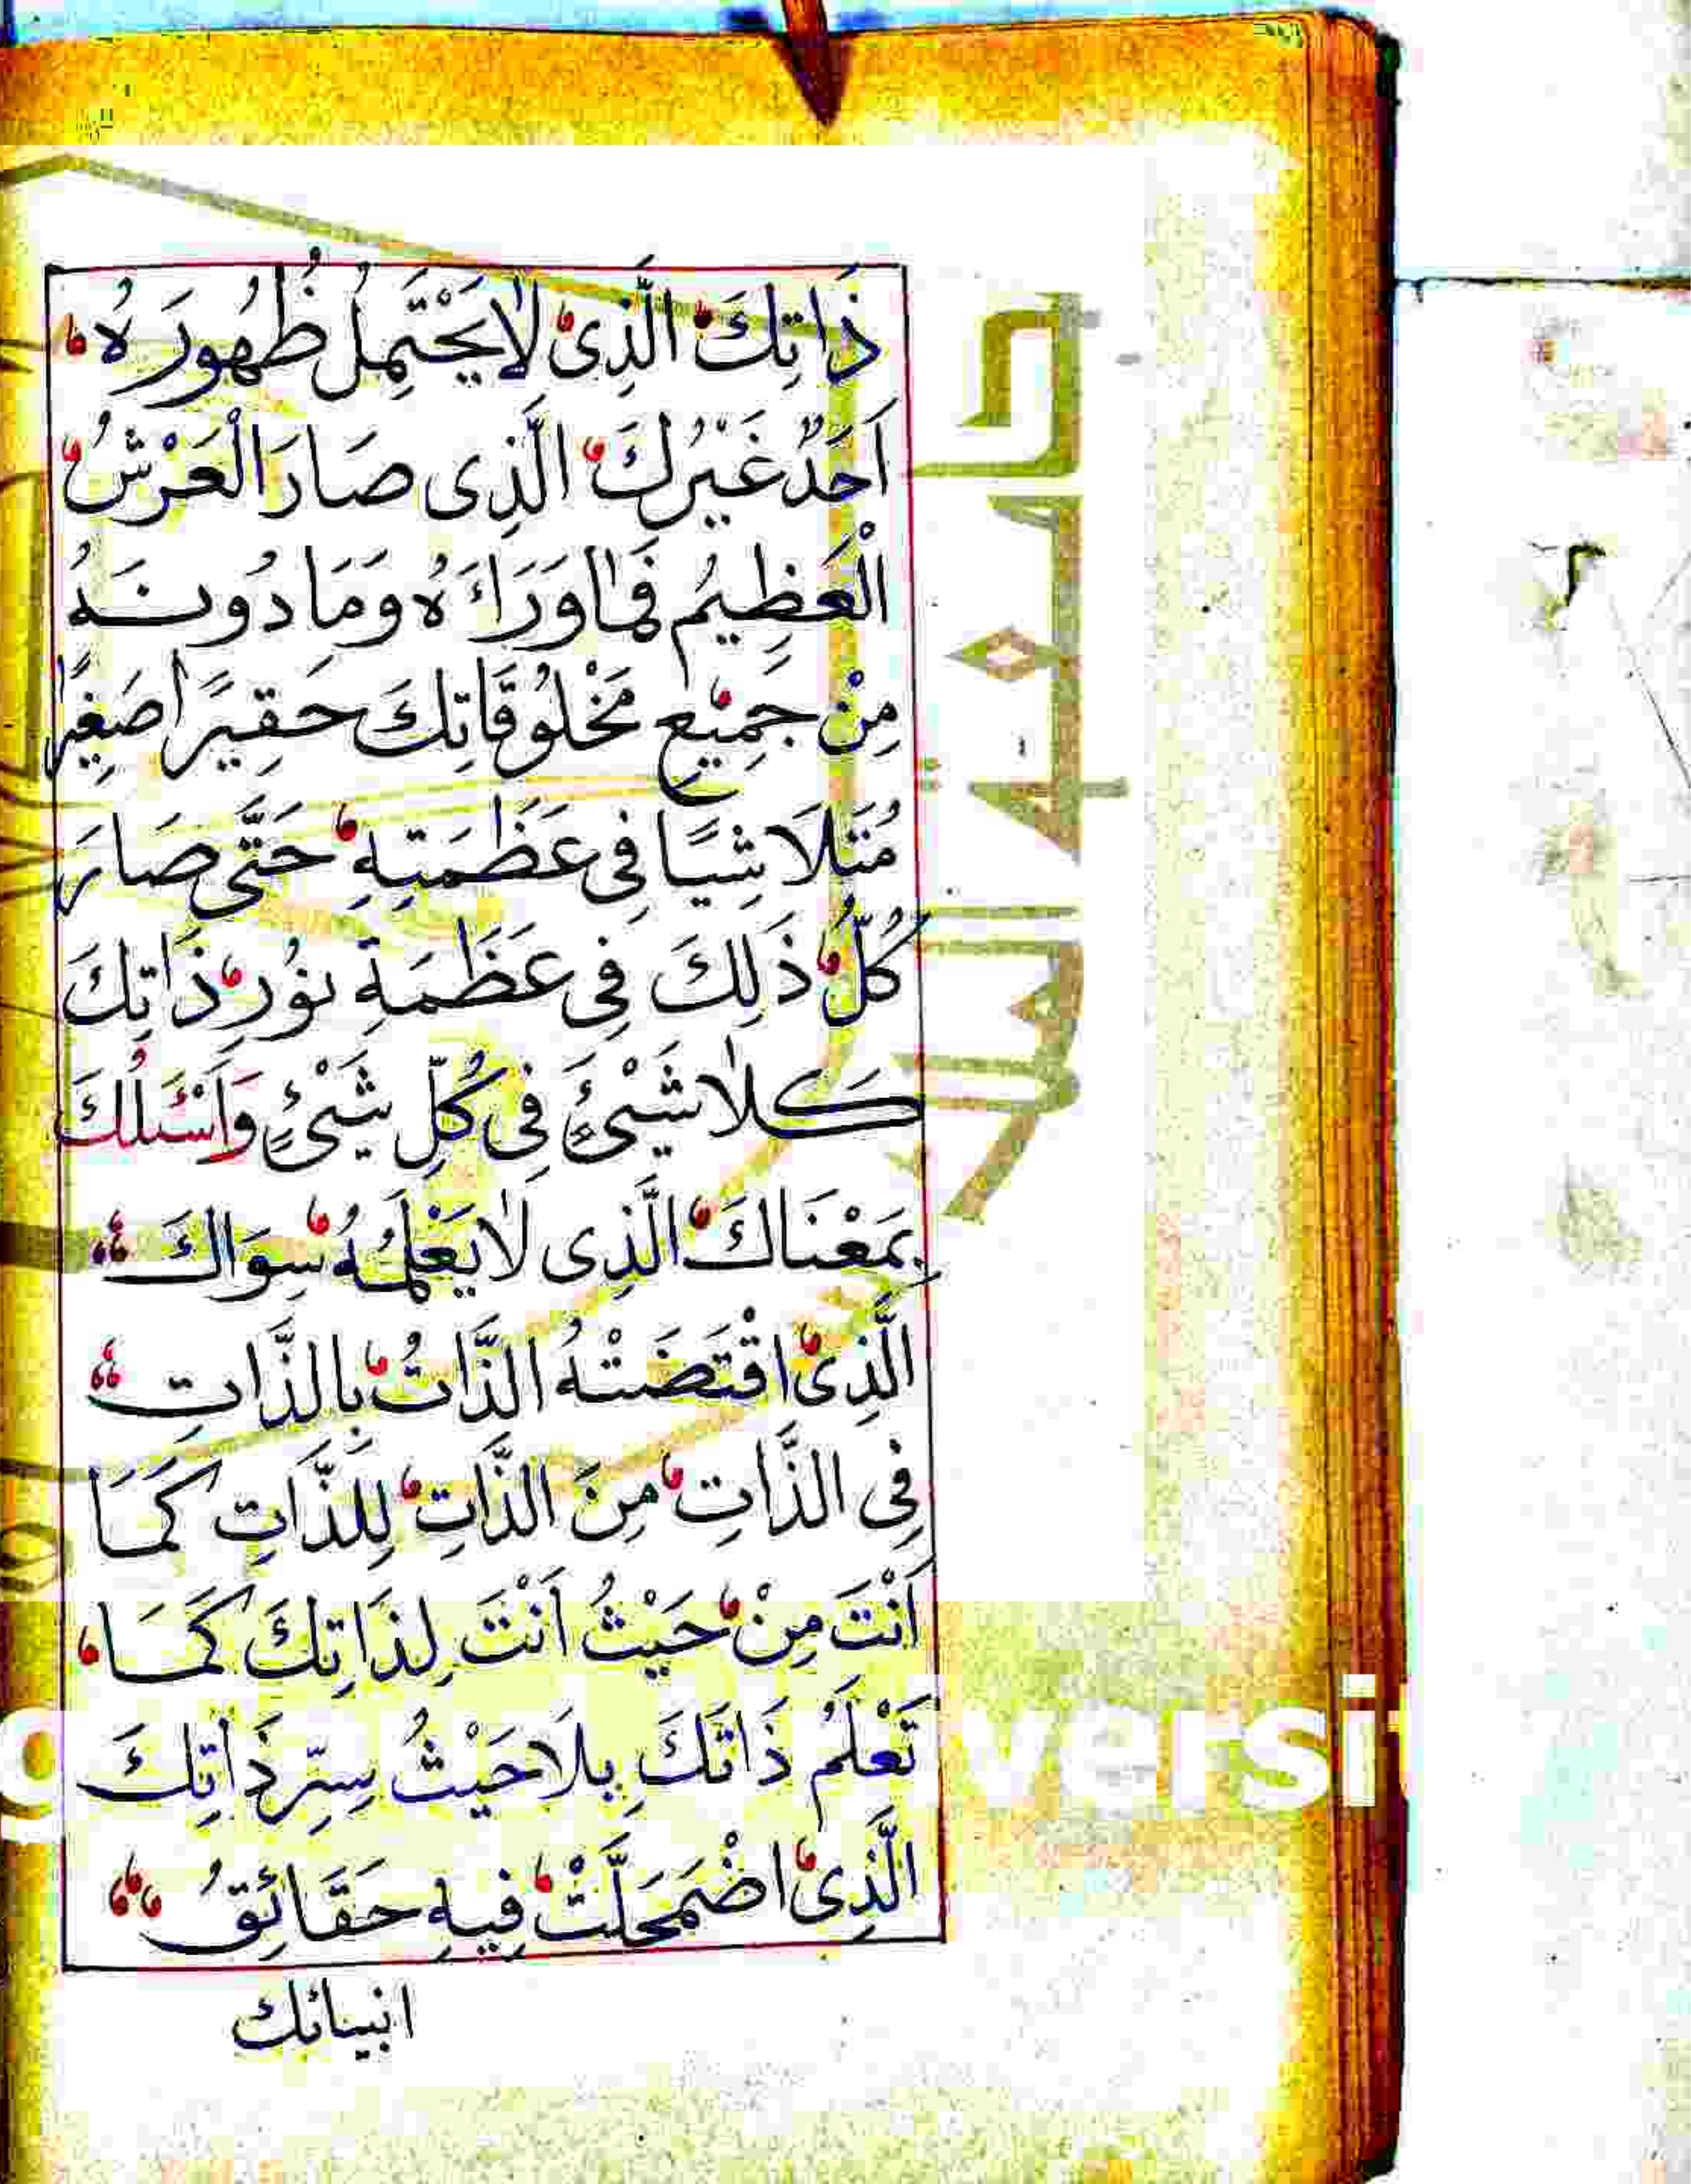 ذَاتِكَ الَّذِی لَا یَحْتَمِلُ ظُهُورَهُ
اَحَدٌ غَیْرُكَ الَّذِی صَارَ الْعَرْشُ
الْعَظِیمُ فَمَا وَرَاءَهُ وَمَا دُونَهُ
مِنْ جَمِیْعِ مَخْلُوقَاتِكَ حَقِیرًا صَغِیرًا
مُتَلَاشِیًا فِی عَظَمَتِهِ حَتَّی صَارَ
كُلُّ ذَلِكَ فِی عَظَمَةِ نُوْرِ ذَاتِكَ
كَلَا شَیْئٍ فِی كُلِّ شَیْئٍ وَاَسْئَلُكَ
بِمَعْنَاكَ الَّذِی لَا یَعْلَمُهُ سِوَاكَ
الَّذِی اقْتَضَتْهُ الذَّاتُ بِالذَّاتِ
فِی الذَّاتِ مِنَ الذَّاتِ لِلذَّاتِ كَمَا
اَنْتَ مِنْ حَیْثُ اَنْتَ لِذَاتِكَ كَمَا
تَعْلَمُ ذَاتَكَ بِلَا حَیْثُ سِرِّ ذَاتِكَ
الَّذِی اضْمَحَلَّتْ فِیهِ حَقَائِقُ
انبیائك
جامعة الملك
versit